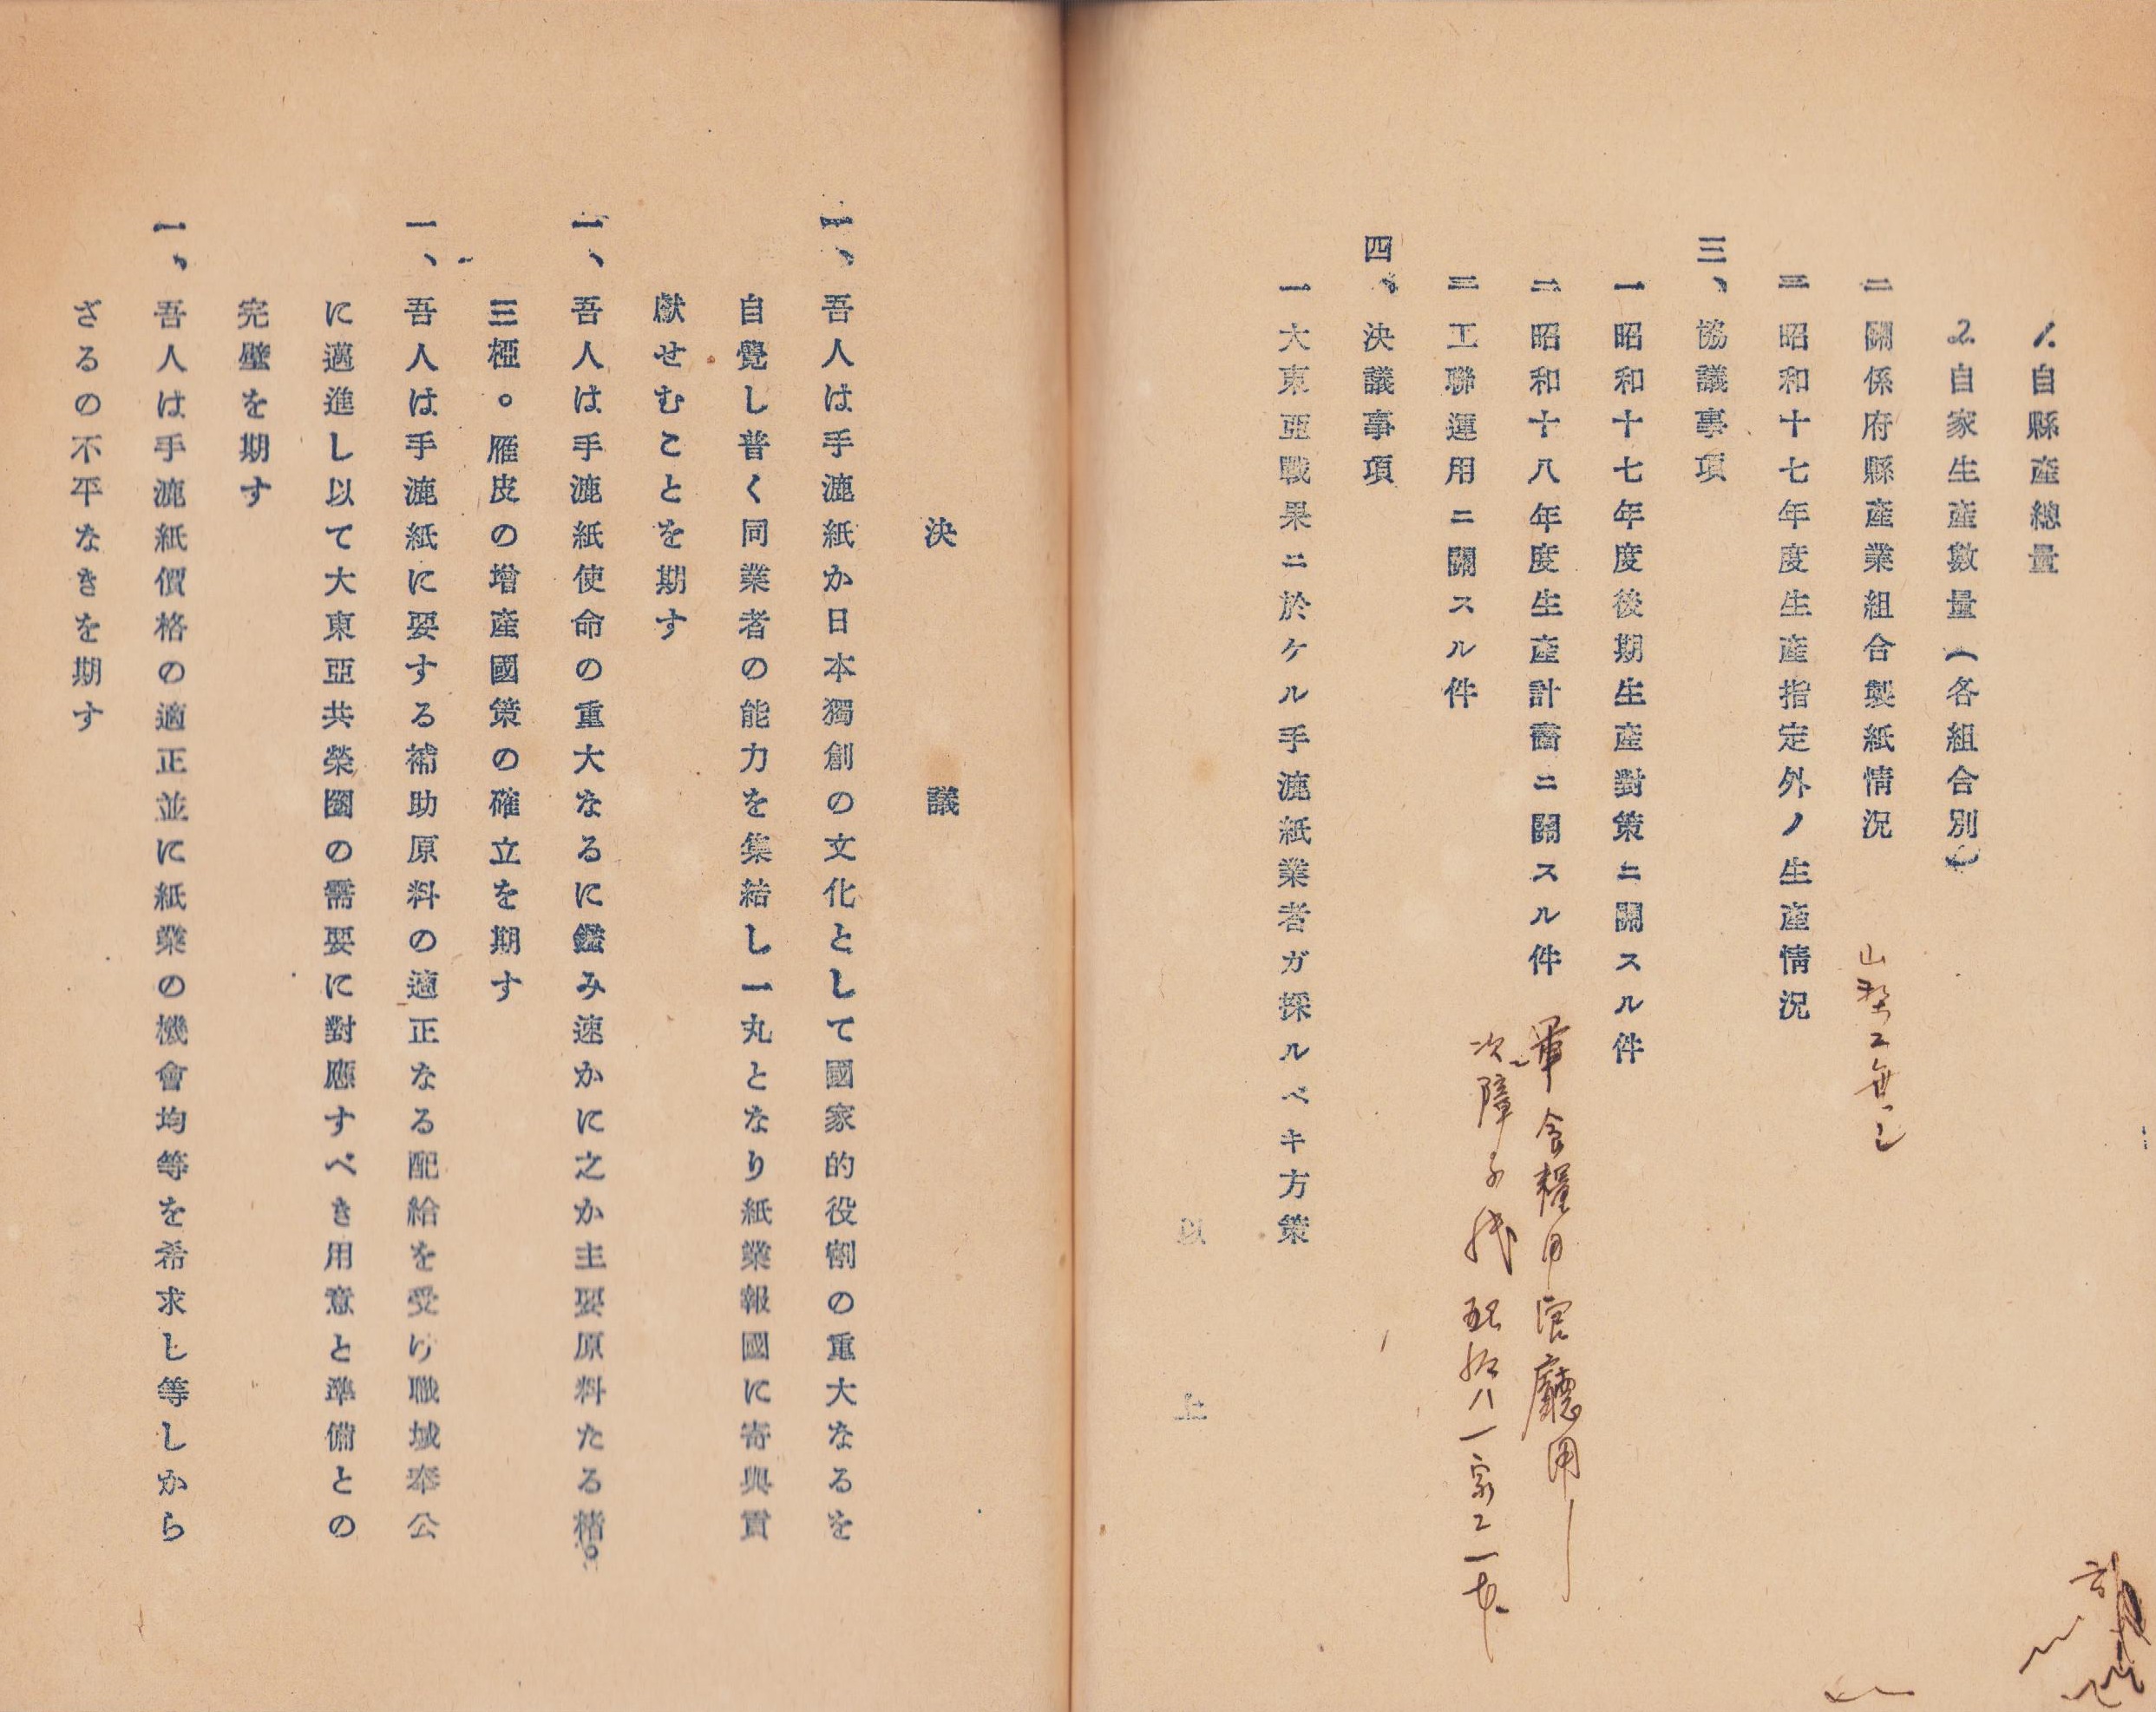 1. 自縣産總量
2. 自家生産數量(各組合別)
二 關係府縣産業組合製紙情況
山形ニ無シ
三 昭和十七年度生産指定外ノ生産情況
三、協議事項
一 昭和十七年度後期生産對策ニ關スル件
二 昭和十八年度生産計畵ニ關スル件
軍食糧用官廳用
三 工聯運用ニ關スル件
次障子紙 配給ハ一家ニ一本
四、決議事項
一 大東亞戰果ニ於ケル手漉紙業者ガ採ルベキ方策
以上
決議
一、吾人は手漉紙か日本獨創の文化として國家的役割の重大なるを
自覺し普く同業者の能力を集結し一丸となり紙業報國に寄與貢
獻せむことを期す
一、吾人は手漉紙使命の重大なるに鑑み速かに之か主要原料たる楮。
三椏。雁皮の增産國策の確立を期す
一、吾人は手漉紙に要する補助原料の適正なる配給を受け職域奉公
に邁進し以て大東亞共榮圈の需要に對應すべき用意と準備との
完璧を期す
一、吾人は手漉紙價格の適正並に紙業の機會均等を希求し等しから
ざるの不平なきを期す